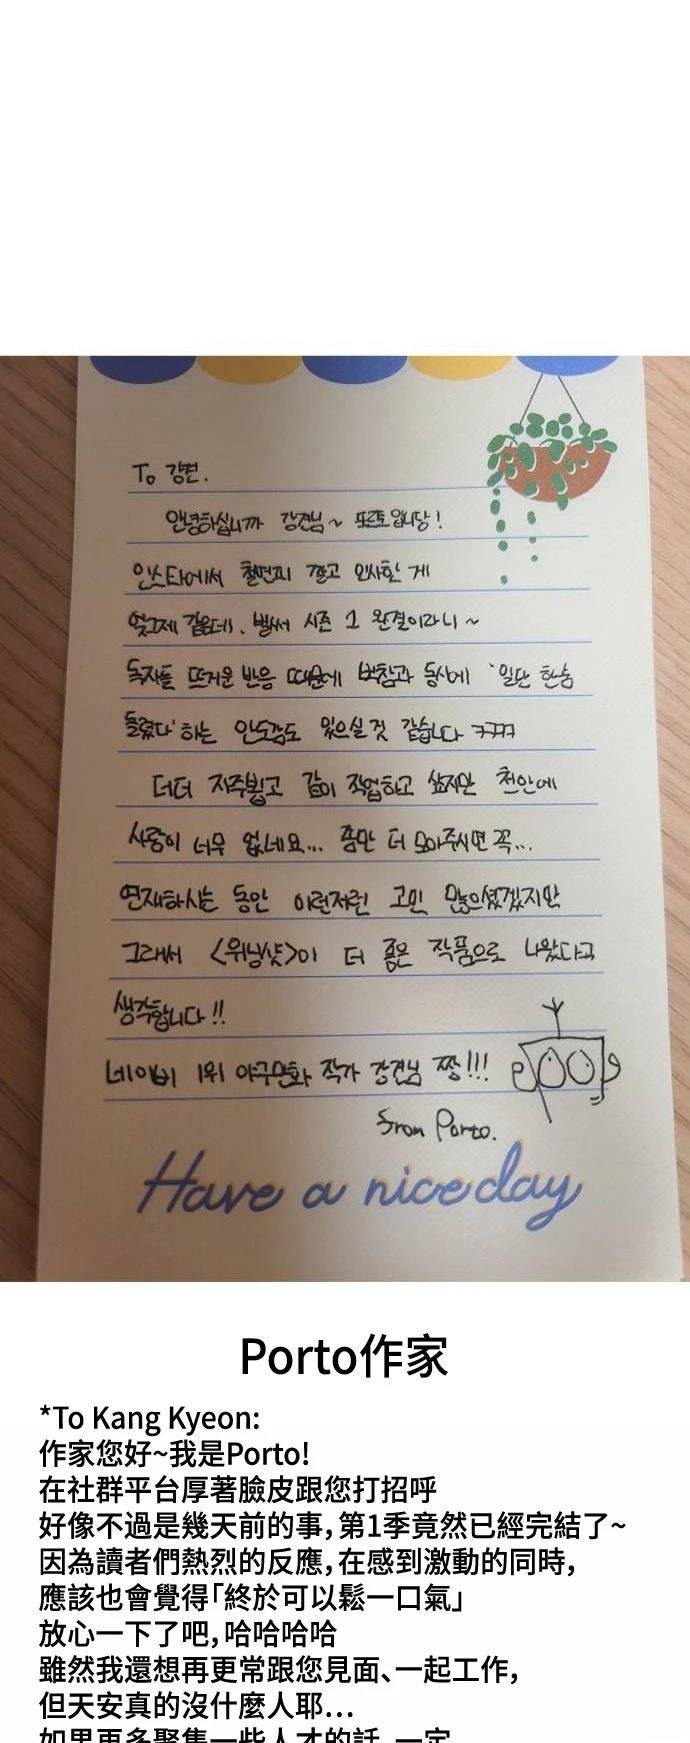 To 강견.
안녕하십니까 강견님~ 포르토입니당!
인스타에서 철면피 깔고 인사한 게
엊그제 같은데, 벌써 시즌 1 완결이라니~
독자들 뜨거운 반응 때문에 벅참과 동시에 '일단 한숨
돌렸다' 하는 안도감도 있으실 것 같습니다 ㅋㅋㅋ
더더 자주 뵙고 같이 작업하고 싶지만 천안에
사람이 너무 없네요... 좀만 더 모아주시면 꼭...
연재하시는 동안 이런저런 고민 많으셨겠지만
그래서 <위닝샷>이 더 좋은 작품으로 나왔다고
생각합니다!!
네이버 1위 야구만화 작가 강견님 짱!!!
from Porto.
Have a nice day
Porto作家
*To Kang Kyeon:
作家您好~我是Porto!
在社群平台厚著臉皮跟您打招呼
好像不過是幾天前的事,第1季竟然已經完結了~
因為讀者們熱烈的反應,在感到激動的同時,
應該也會覺得「終於可以鬆一口氣」
放心一下了吧,哈哈哈哈
雖然我還想再更常跟您見面、一起工作,
但天安真的沒什麼人耶...
如果再多聚集一些人才的話,一定